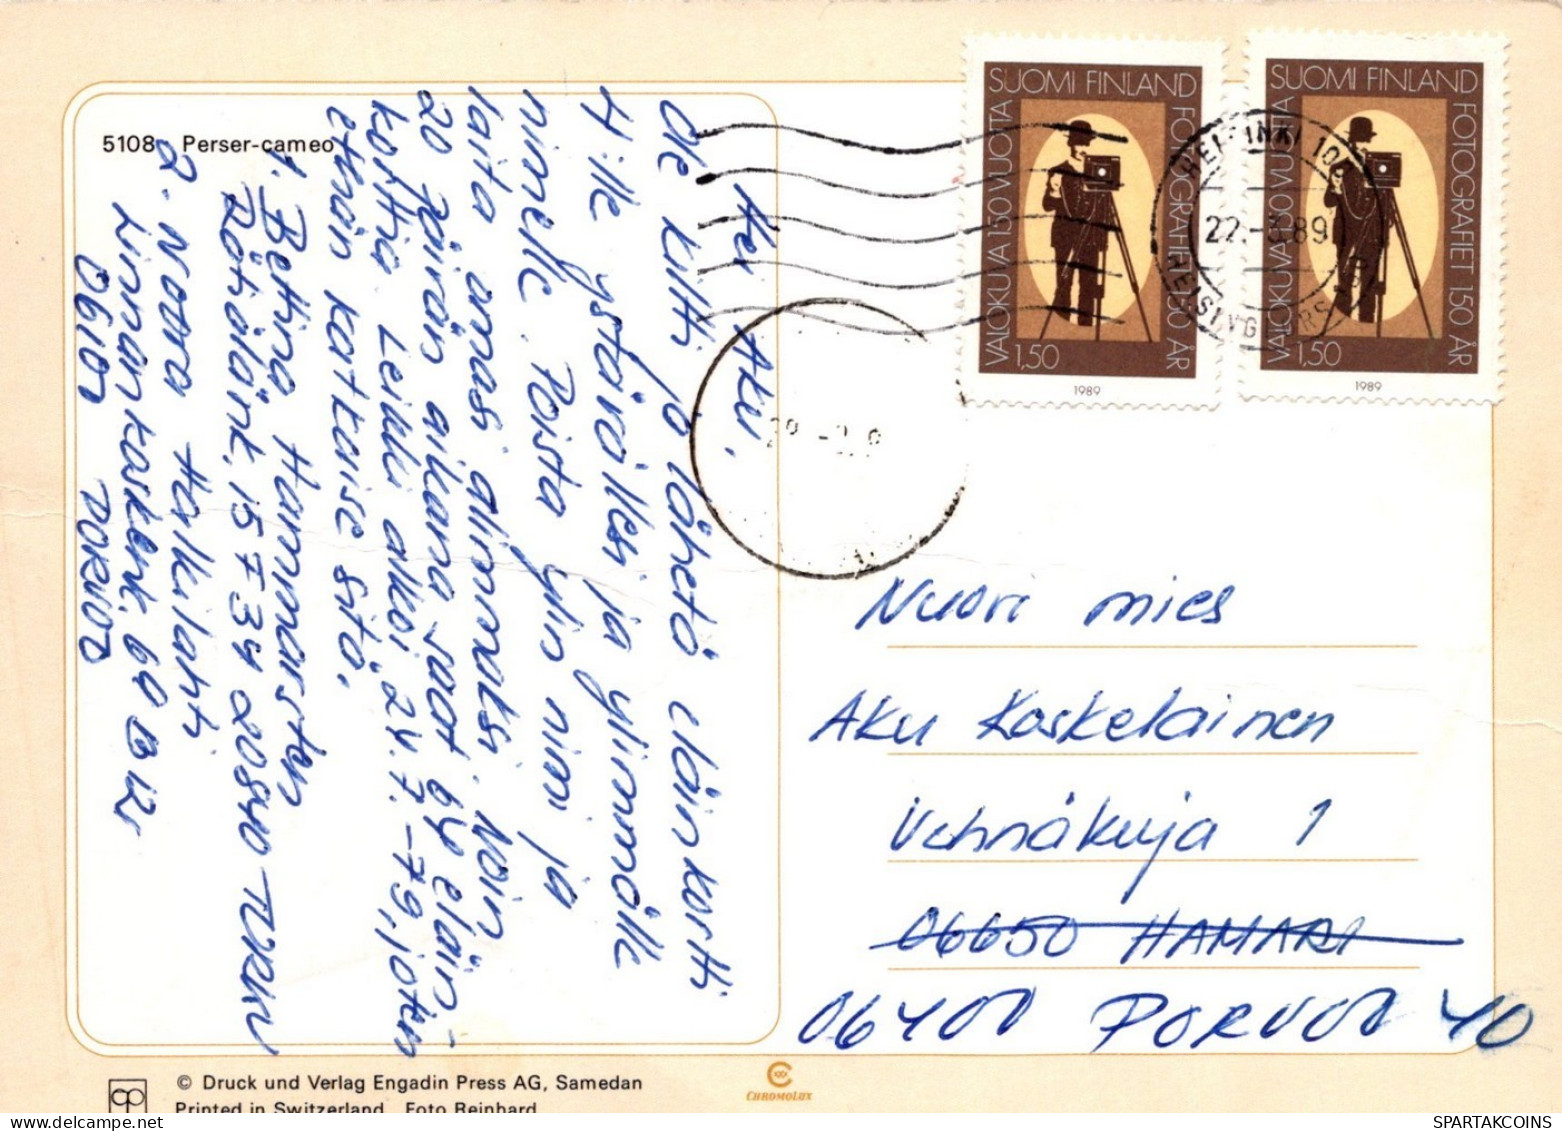 5108 Perser-cameo
Hei Aku.
Ole kiltti ja lähetä eläinkortti
4:lle ystävällesi ja ylimmälle
nimelle. Poista ylin nimi ja
laita omasi alimmaksi. Noin
20 päivän aikana saat 64 eläin-
korttia. Leikki alkoi 24.7.-79, joten
ethän katkaise sitä.
1. Bettina Hammarsten
15 F 34 20540 TURKU
2. Noora Halkilahti
Linnankoskenk. 60 B 12
06100 PORVOO
SUOMI FINLAND
VALOKUVA 150 VUOTTA
FOTOGRAFIET 150 ÅR
1,50
1989
SUOMI FINLAND
VALOKUVA 150 VUOTTA
FOTOGRAFIET 150 ÅR
1,50
1989
HELSINKI 10
22.-3.89
HELSINGFORS
Nuori mies
Aku Koskelainen
Vehnäkuja 1
06650 HAMARI
06400 PORVOO 40
© Druck und Verlag Engadin Press AG, Samedan
Printed in Switzerland Foto Reinhard
CHROMOLUX
SPARTAKCOINS